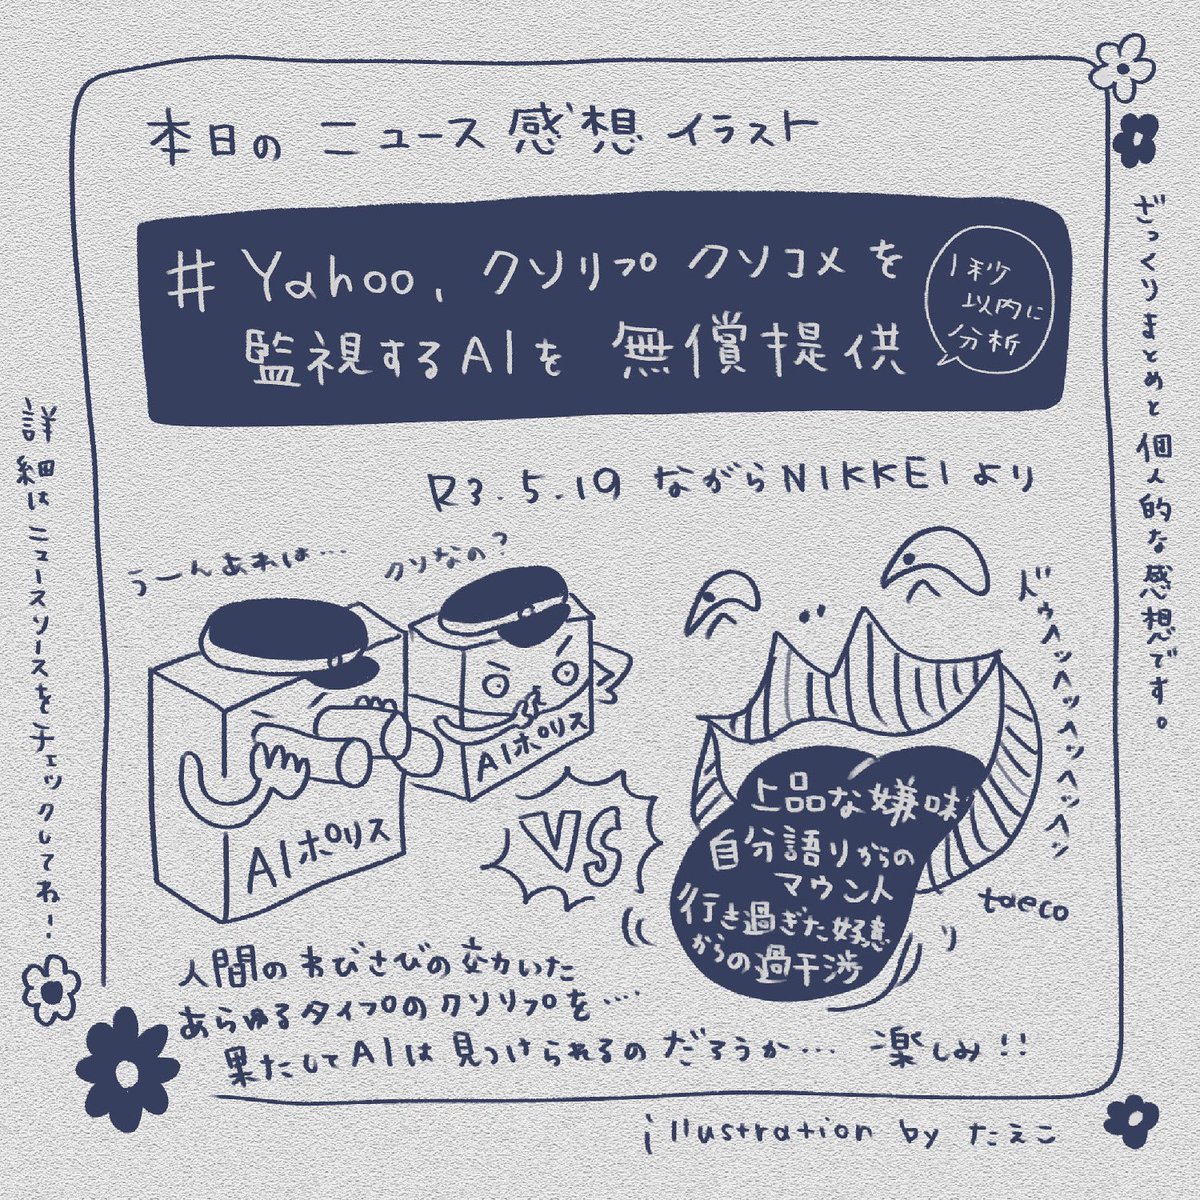 本日のニュース感想イラスト
#Yahoo、クソリプクソコメを
監視するAIを無償提供
1秒
以内に
分析
R3.5.19 ながらNIKKEIより
ざっくりまとめと個人的な感想です。
詳細はニュースソースをチェックしてね!
うーんあれは…
クソなの?
AIポリス
AIポリス
VS
ドゥヘッヘッヘッヘッヘッヘッ
上品な嫌味
自分語りからの
マウント
行き過ぎた好意
からの過干渉
taeco
人間のわびさびの交わいた
あらゆるタイプのクソリプを…
果たしてAIは見つけられるのだろうか… 楽しみ!!
illustration by たえこ